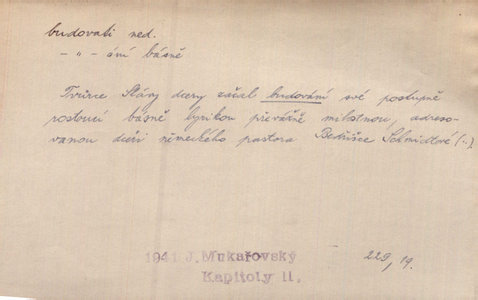 budovati ned.
– " – ání básně
Tvůrce Slávy dcery začal budování své postupně
rostoucí básně lyrikou převážně milostnou, adreso-
vanou dceři německého pastora Bedřišce Schmidtové (..).
1941 J. Mukařovský
Kapitoly II.
229, 19.